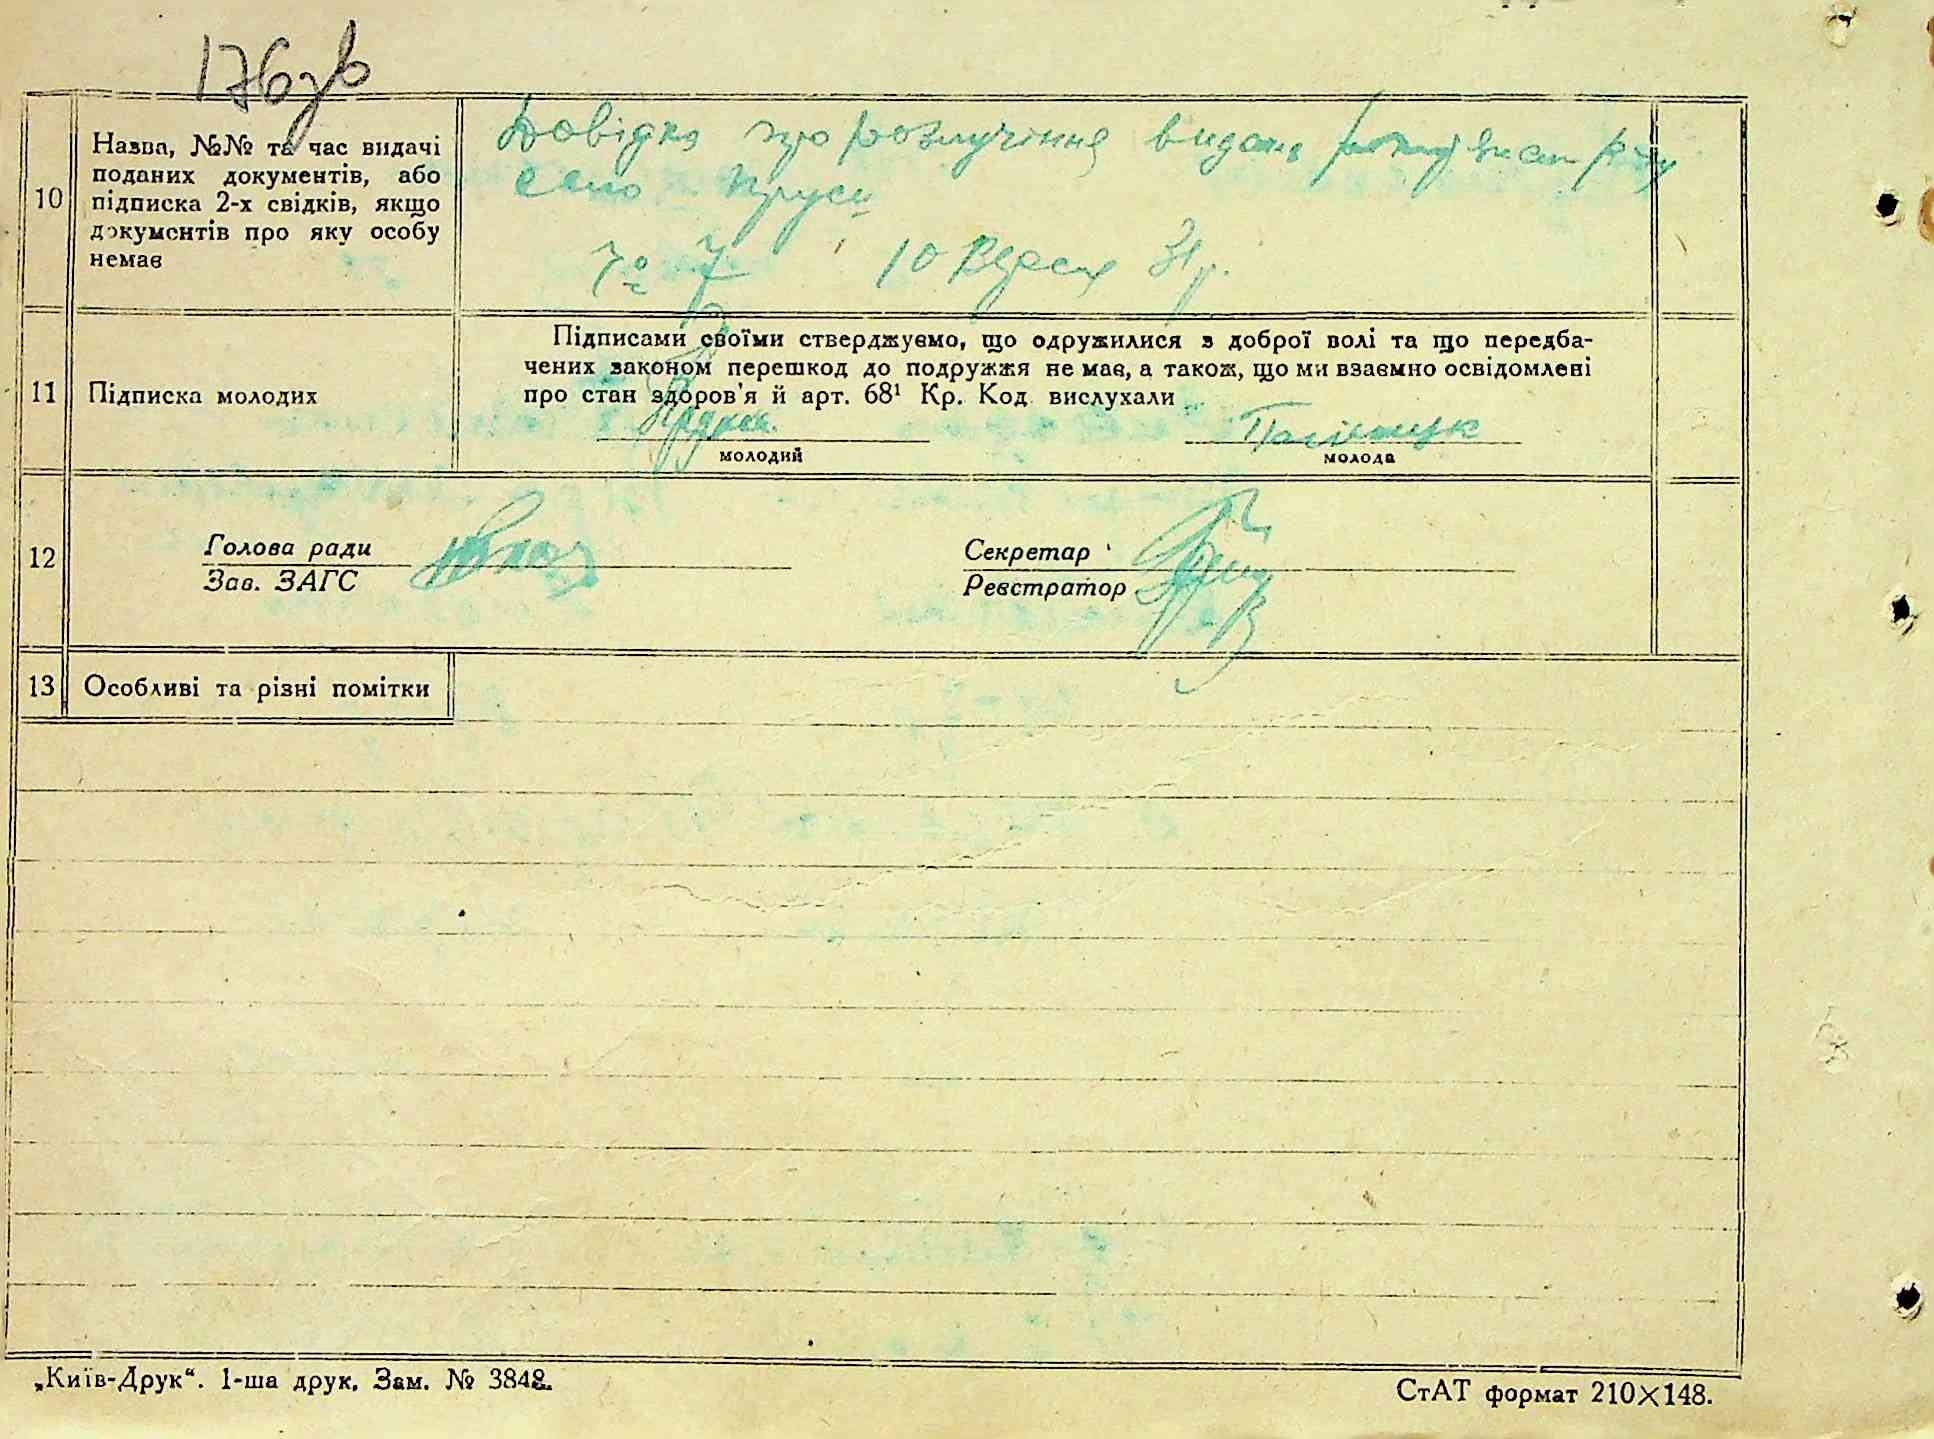 176зв
10
Назва, №№ та час видачі
поданих документів, або
підписка 2-х свідків, якщо
документів про яку особу
немає
Довідка про розлучіння видана
село Пруси
№ 7 10 Вересня 31 р.
11
Підписка молодих
Підписами своїми стверджуємо, що одружилися з доброї волі та що передба-
чених законом перешкод до подружжя не має, а також, що ми взаємно освідомлені
про стан здоров'я й арт. 68¹ Кр. Код. вислухали
молодий
молода
12
Голова ради
Зав. ЗАГС
Секретар
Реєстратор
13
Особливі та різні помітки
„Київ-Друк“. 1-ша друк. Зам. № 3848.
СтАТ формат 210×148.